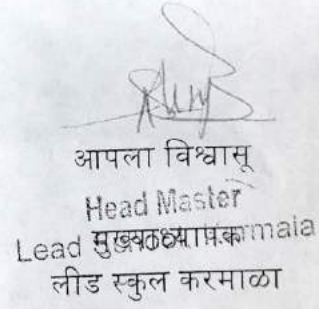 आपला विश्वासू
Head Master
Lead School Karmala
मुख्याध्यापक
लीड स्कुल करमाळा